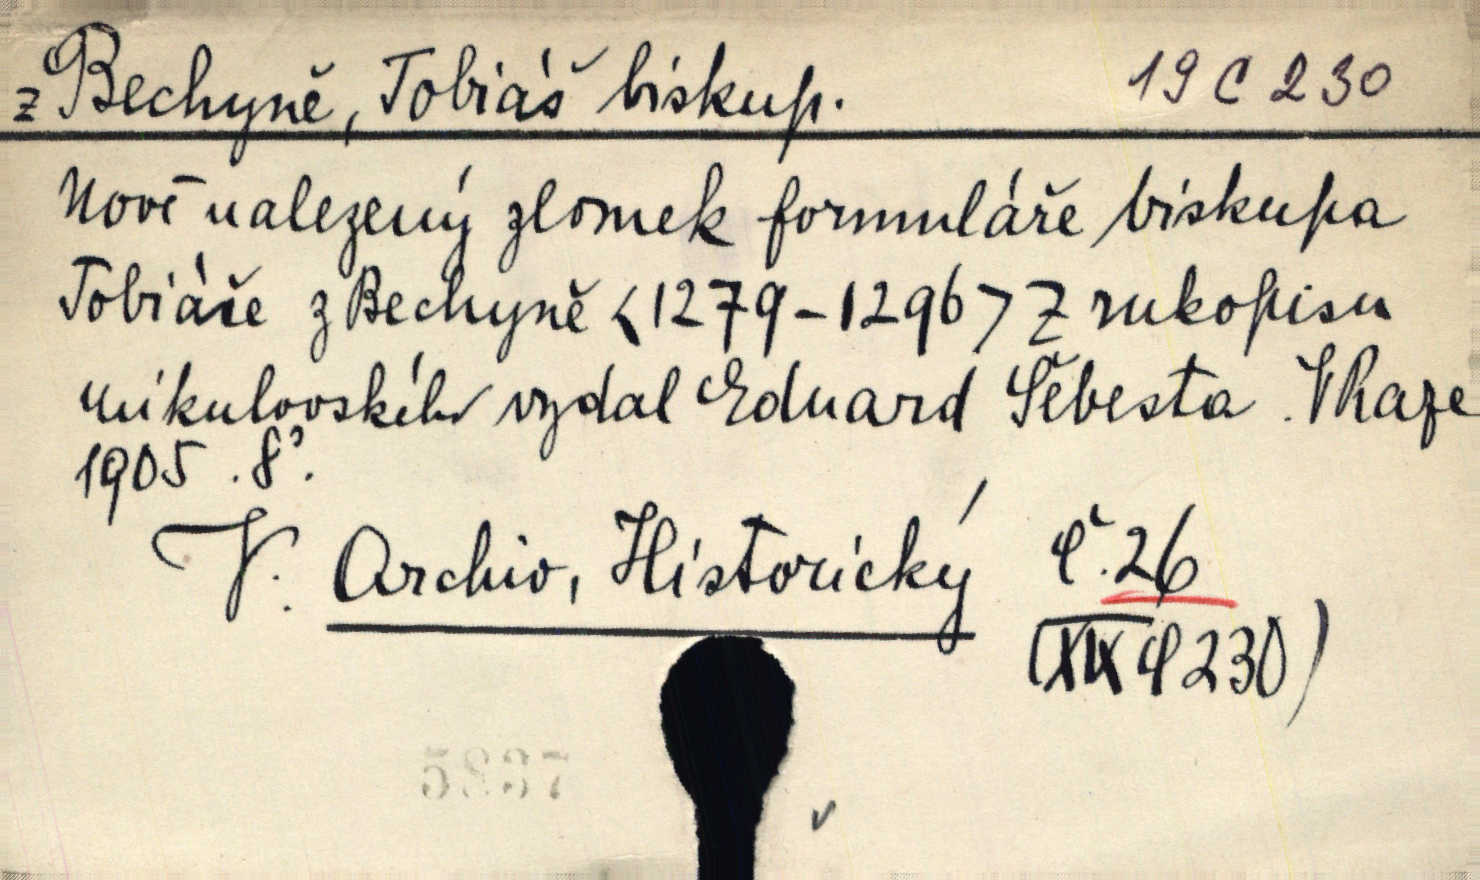 z Bechyně, Tobiáš biskup. 19 C 230
Nově nalezený zlomek formuláře biskupa
Tobiáše z Bechyně <1279-1296> Z rukopisu
mikulovského vydal Eduard Šebesta. V Praze
1905. 8°.
V. Archiv, Historický č. 26
(XIX C 230)